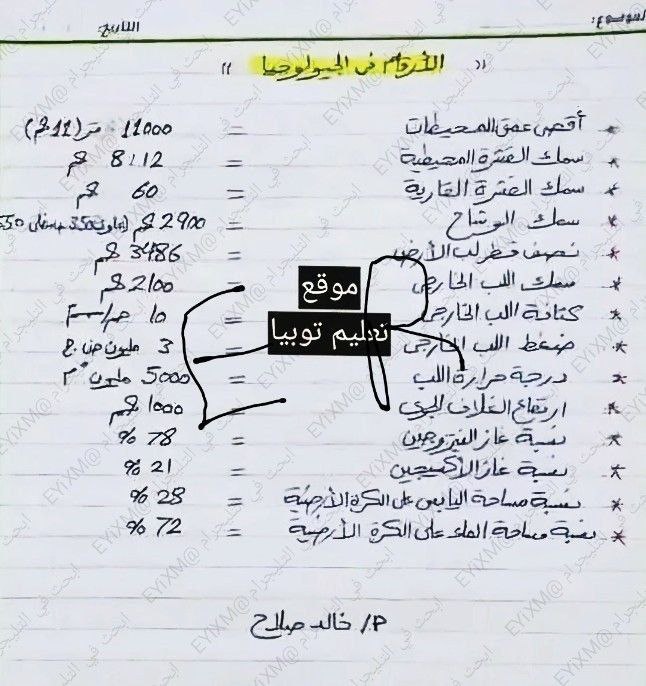 الموضوع:
التاريخ:
" الأرقام في الجيولوجيا "
* أقصى عمق المحيطات = 11000 متر (11 كم)
* سمك القشرة المحيطية = 8:12 كم
* سمك القشرة القارية = 60 كم
* سمك الوشاح = 2900 كم
* نصف قطر لب الأرض = 3486 كم
* سمك اللب الخارجى = 2100 كم
* كثافة اللب الخارجى = 10 جم/سم
* ضغط اللب الخارجى = 3 مليون ض.ج
* درجة حرارة اللب = 5000 مليون °م
* ارتفاع الغلاف الجوى = 1000 كم
* نسبة غاز النيتروجين = 78 %
* نسبة غاز الأكسجين = 21 %
* نسبة مساحة اليابس على الكرة الأرضية = 28 %
* نسبة مساحة الماء على الكرة الأرضية = 72 %
P/ خالد صلاح
موقع
تعليم توبيا
ابحث في التليجرام @EYIXM